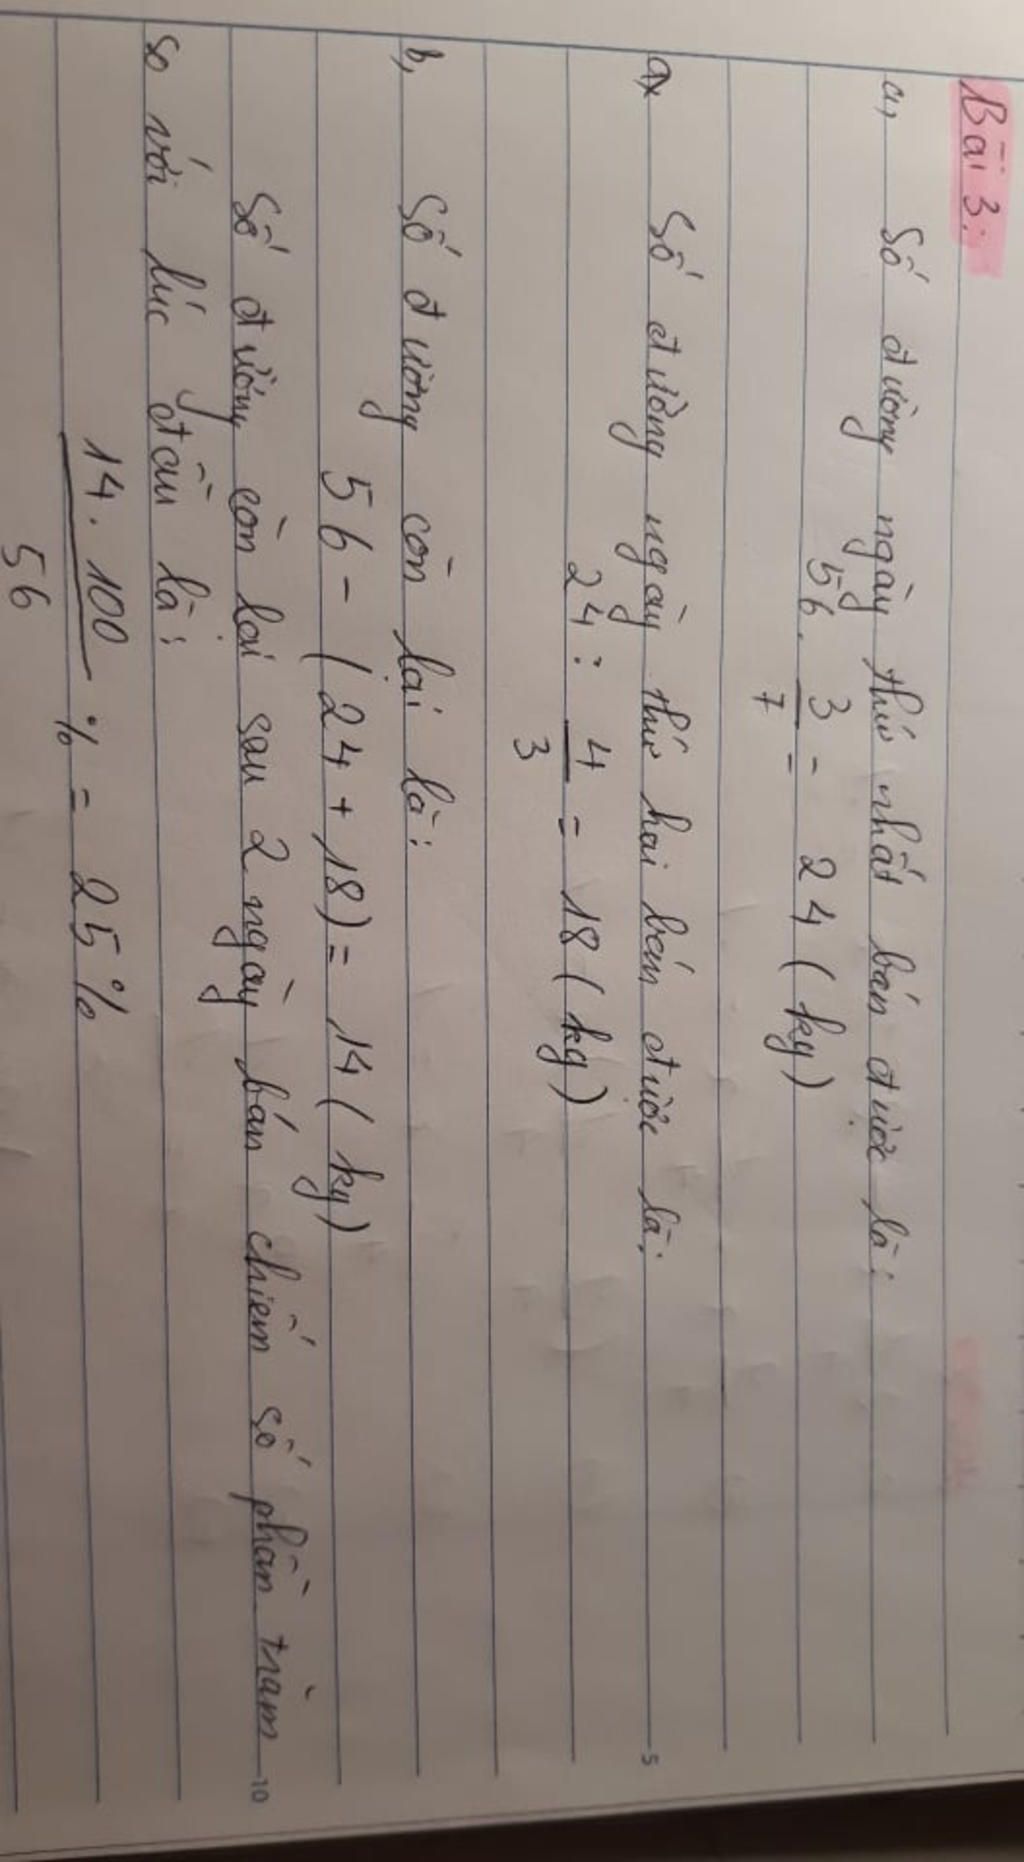 Bài 3:
a, Số đường ngày thứ nhất bán được là:
56 . 3/7 = 24 (kg)
a, Số đường ngày thứ hai bán được là:
24 : 4/3 = 18 (kg)
b, Số đường còn lại là:
56 - (24 + 18) = 14 (kg)
Số đường còn lại sau 2 ngày bán chiếm số phần trăm
so với lúc đầu là:
14 . 100 / 56 % = 25 %
5
10